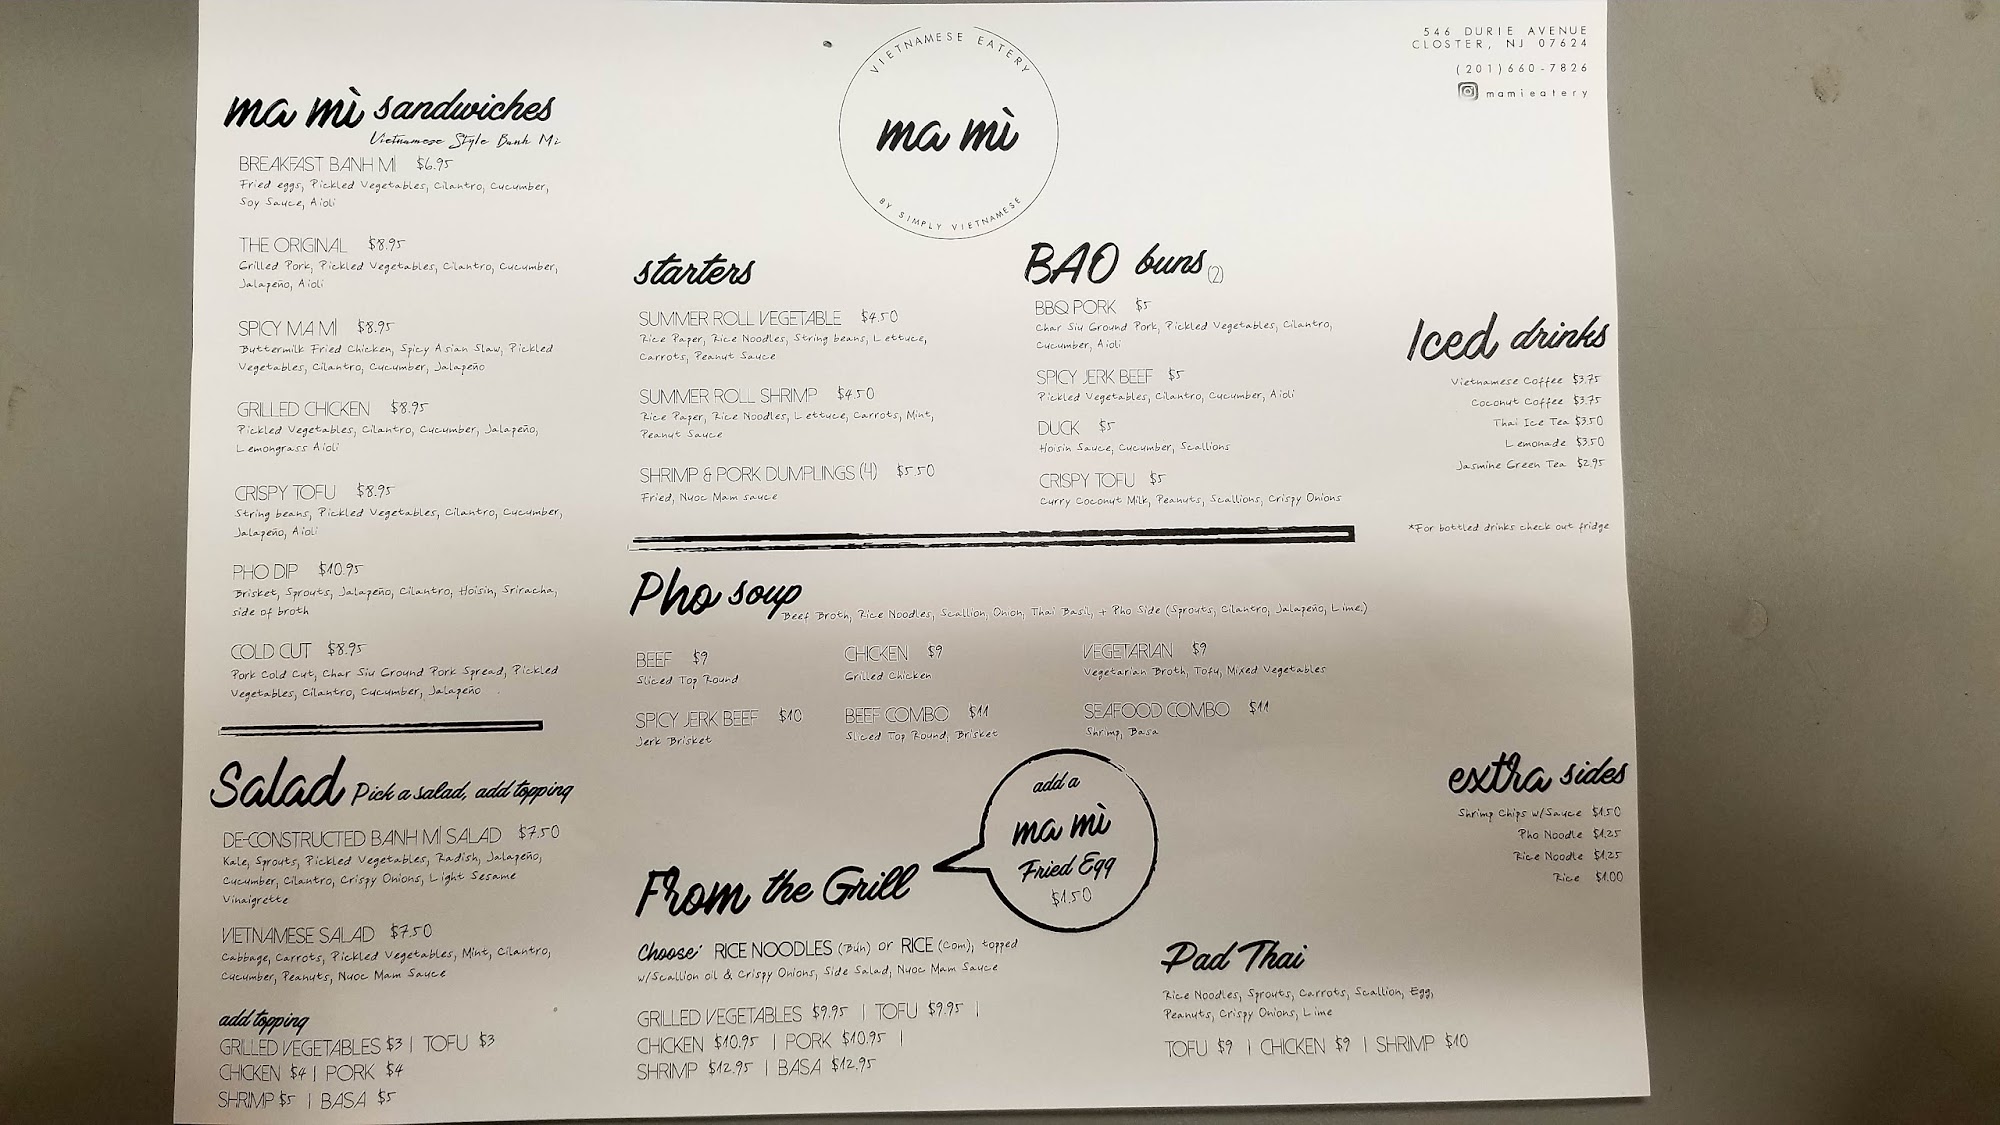 VIETNAMESE EATERY
ma mì
BY SIMPLY VIETNAMESE
546 DURIE AVENUE
CLOSTER, NJ 07624
(201)660-7826
mamieatery
ma mì sandwiches
Vietnamese Style Banh Mi
BREAKFAST BANH MÌ $6.95
Fried eggs, Pickled Vegetables, Cilantro, Cucumber,
Soy Sauce, Aioli
THE ORIGINAL $8.95
Grilled Pork, Pickled Vegetables, Cilantro, Cucumber,
Jalapeño, Aioli
SPICY MA MÌ $8.95
Buttermilk Fried Chicken, Spicy Asian Slaw, Pickled
Vegetables, Cilantro, Cucumber, Jalapeño
GRILLED CHICKEN $8.95
Pickled Vegetables, Cilantro, Cucumber, Jalapeño,
Lemongrass Aioli
CRISPY TOFU $8.95
String beans, Pickled Vegetables, Cilantro, Cucumber,
Jalapeño, Aioli
PHO DIP $10.95
Brisket, Sprouts, Jalapeño, Cilantro, Hoisin, Sriracha,
side of broth
COLD CUT $8.95
Pork Cold Cut, Char Siu Ground Pork Spread, Pickled
Vegetables, Cilantro, Cucumber, Jalapeño
Salad Pick a salad, add topping
DE-CONSTRUCTED BANH MÌ SALAD $7.50
Kale, Sprouts, Pickled Vegetables, Radish, Jalapeño,
Cucumber, Cilantro, Crispy Onions, Light Sesame
Vinaigrette
VIETNAMESE SALAD $7.50
Cabbage, Carrots, Pickled Vegetables, Mint, Cilantro,
Cucumber, Peanuts, Nuoc Mam Sauce
add topping
GRILLED VEGETABLES $3 | TOFU $3
CHICKEN $4 | PORK $4
SHRIMP $5 | BASA $5
starters
SUMMER ROLL VEGETABLE $4.50
Rice Paper, Rice Noodles, String beans, Lettuce,
Carrots, Peanut Sauce
SUMMER ROLL SHRIMP $4.50
Rice Paper, Rice Noodles, Lettuce, Carrots, Mint,
Peanut Sauce
SHRIMP & PORK DUMPLINGS (4) $5.50
Fried, Nuoc Mam sauce
BAO buns (2)
BBQ PORK $5
Char Siu Ground Pork, Pickled Vegetables, Cilantro,
Cucumber, Aioli
SPICY JERK BEEF $5
Pickled Vegetables, Cilantro, Cucumber, Aioli
DUCK $5
Hoisin Sauce, Cucumber, Scallions
CRISPY TOFU $5
Curry Coconut Milk, Peanuts, Scallions, Crispy Onions
Iced drinks
Vietnamese Coffee $3.75
Coconut Coffee $3.75
Thai Ice Tea $3.50
Lemonade $3.50
Jasmine Green Tea $2.95
*For bottled drinks check out fridge
Pho soup
Beef Broth, Rice Noodles, Scallion, Onion, Thai Basil, + Pho Side (Sprouts, Cilantro, Jalapeño, Lime.)
BEEF $9
Sliced Top Round
CHICKEN $9
Grilled Chicken
VEGETARIAN $9
Vegetarian Broth, Tofu, Mixed Vegetables
SPICY JERK BEEF $10
Jerk Brisket
BEEF COMBO $11
Sliced Top Round, Brisket
SEAFOOD COMBO $11
Shrimp, Basa
From the Grill
add a
ma mì
Fried Egg
$1.50
Choose: RICE NOODLES (Bún) or RICE (Com); topped
w/Scallion oil & Crispy Onions, Side Salad, Nuoc Mam Sauce
GRILLED VEGETABLES $9.95 | TOFU $9.95 |
CHICKEN $10.95 | PORK $10.95 |
SHRIMP $12.95 | BASA $12.95
extra sides
Shrimp Chips w/Sauce $1.50
Pho Noodle $1.25
Rice Noodle $1.25
Rice $1.00
Pad Thai
Rice Noodles, Sprouts, Carrots, Scallion, Egg,
Peanuts, Crispy Onions, Lime
TOFU $9 | CHICKEN $9 | SHRIMP $10